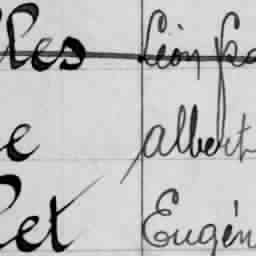 lles Léon fra
e albert
let Eugén